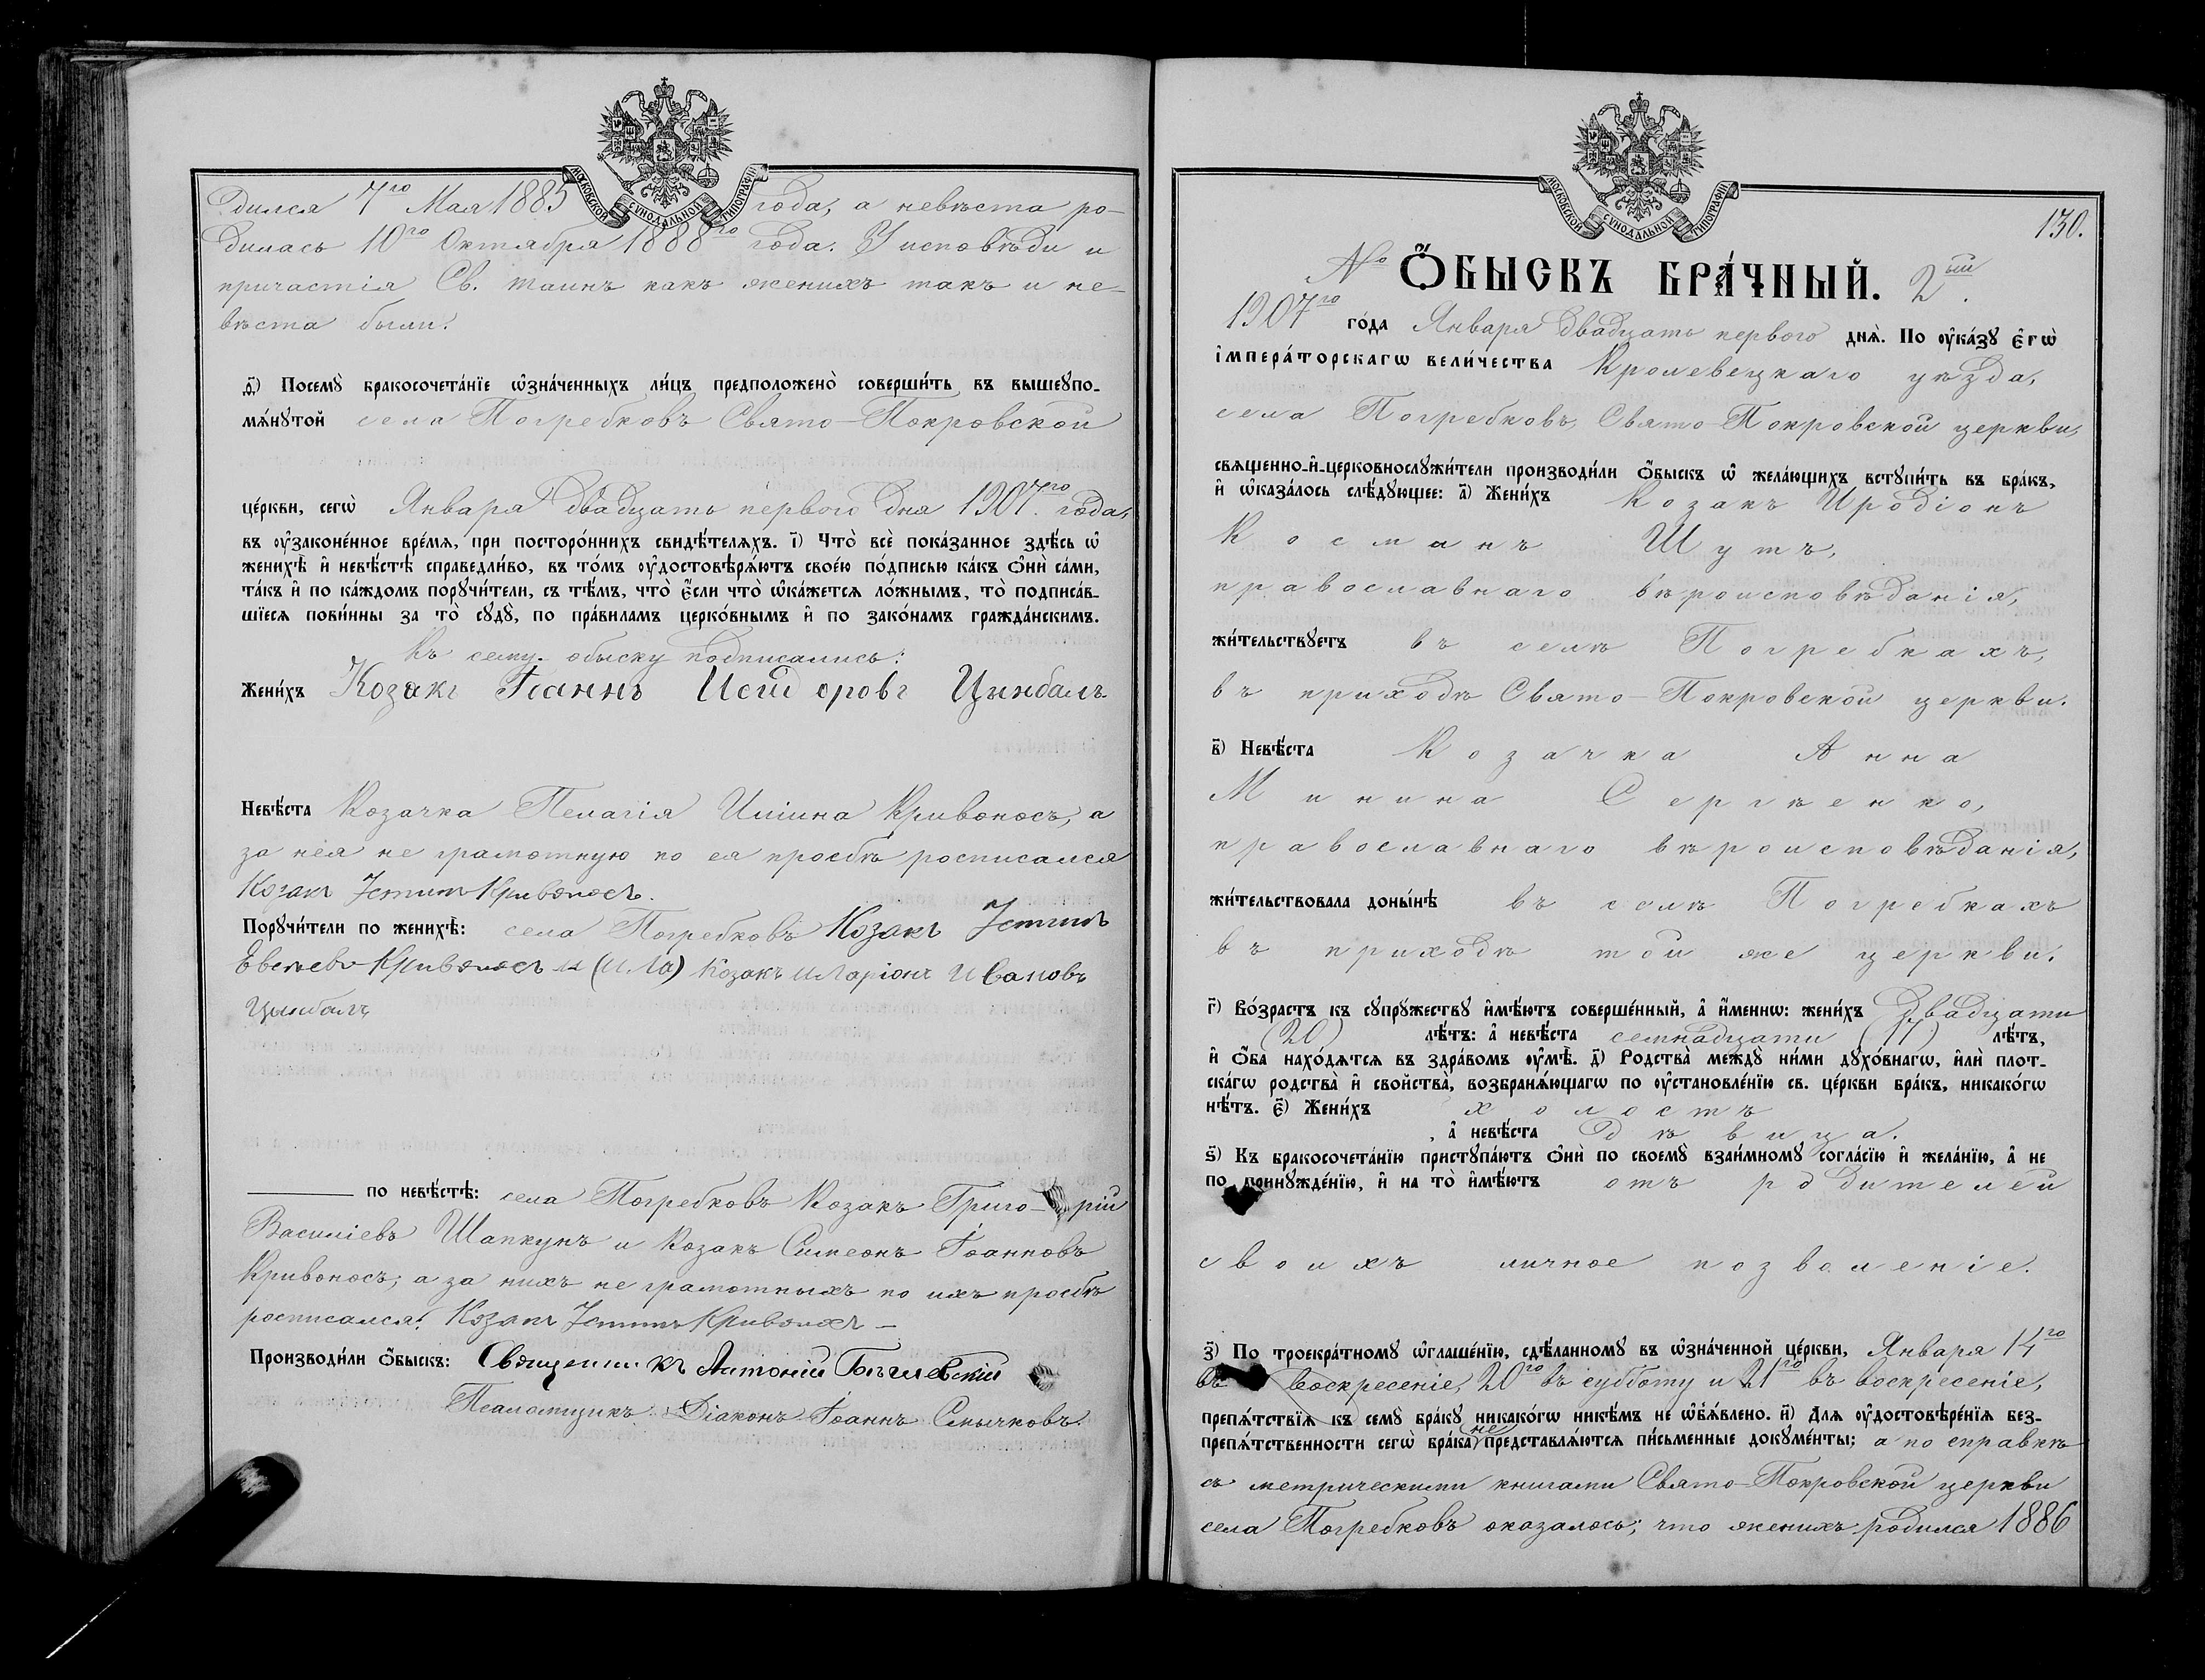 МОСКОВСКОЙ СѴНОДАЛЬНОЙ ТИПОГРАФІИ
дился 7го Мая 1885 года, а невѣста ро-
дилась 10го Октября 1888го года. У исповѣди и
причастія Св. таинъ какъ женихъ такъ и не-
вѣста были.
ѳ҃) Посемꙋ̀ бракосочета́нїе ѡ҆зна́ченныхъ ли́цъ предположено̀ соверши́ть въ вышеꙋпо-
мѧ́нꙋтой села Погребковъ Свято-Покровской
це́ркви, сегѡ̀ Января двадцать первого дня 1907го года,
въ ᲂу҆зако́ненное вре́мѧ, при посторо́ннихъ свидѣ́телѧхъ. і҃) Что̀ всѐ пока́занное здѣ́сь ѡ҆
женихѣ̀ и҆ невѣ́стѣ справедли́во, въ то́мъ ᲂу҆достовѣрѧ́ютъ свое́ю по́дписью ка́къ ѻ҆нѝ са́ми,
та́къ и҆ по ка́ждомъ порꙋчи́тели, съ тѣ́мъ, что̀ є҆́сли что̀ ѡ҆ка́жетсѧ ло́жнымъ, то̀ подписа́в-
шїесѧ пови́нны за то̀ сꙋдꙋ̀, по пра́виламъ церко́внымъ и҆ по зако́намъ гражда́нскимъ.
Къ сему обыску подписались:
Жени́хъ Козакъ Іоаннъ Исидоровъ Цымбалъ
Невѣ́ста Козачка Пелагія Иліина Кривоносъ, а
за нея не грамотную по ея просьбѣ росписался
Козакъ Устинъ Кривоносъ.
Порꙋчи́тели по женихѣ̀: села Погребковъ Козакъ Устинъ
Евсеевъ Кривоносъ и (ила) Козакъ иларіонъ Ивановъ
Цымбалъ
по невѣ́стѣ: села Погребковъ Козакъ Григо-рій
Василіевъ Шапкунъ и Козакъ Симеонъ Іоанновъ
Кривоносъ; а за нихъ не грамотныхъ по ихъ просьбѣ
росписался: Козакъ Устинъ Кривоносъ —
Производи́ли ѻ҆́быскъ: Священникъ Антоній
Псаломщикъ Діаконъ Іоаннъ Смычковъ.
МОСКОВСКОЙ СѴНОДАЛЬНОЙ ТИПОГРАФІИ
130.
№ Ѻ҆́БЫСКЪ БРА́ЧНЫЙ. 2ый.
1907го го́да Января двадцать первого днѧ̀. По ᲂу҆ка́зꙋ є҆гѡ̀
і҆мпера́торскагѡ вели́чества Кролевецкаго уѣзда,
села Погребковъ, Свято-Покровской церкви,
свѧщенно-и҆-церковнослꙋжи́тели производи́ли ѻ҆́быскъ ѡ҆ жела́ющихъ встꙋпи́ть въ бра́къ,
и҆ ѡ҆каза́лось слѣ́дꙋющее: а҃) Жени́хъ Козакъ Иродіонъ
Косманъ Шутъ,
православнаго вѣроисповѣданія,
жи́тельствꙋетъ въ селѣ Погребкахъ,
въ приходѣ Свято-Покровской церкви.
в҃) Невѣ́ста Козачка Анна
Минина Сергѣенко,
православнаго вѣроисповѣданія,
жи́тельствовала доны́нѣ въ селѣ Погребкахъ
въ приходѣ той же церкви.
г҃) Во́зрастъ къ сꙋпрꙋ́жествꙋ и҆мѣ́ютъ соверше́нный, а҆ и҆́меннѡ: жени́хъ двадцати
(20) лѣ́тъ: а҆ невѣ́ста семнадцати (17) лѣ́тъ,
и҆ ѻ҆́ба нахо́дѧтсѧ въ здра́вомъ ᲂу҆мѣ̀. д҃) Родства̀ междꙋ̀ ни́ми дꙋхо́внагѡ, и҆лѝ плот-
ска́гѡ родства̀ и҆ сво́йства, возбранѧ́ющагѡ по ᲂу҆становле́нїю св. це́ркви бра́къ, никако́гѡ
нѣ́тъ. є҃) Жени́хъ холостъ
, а҆ невѣ́ста дѣвица.
ѕ҃) Къ бракосочета́нїю пристꙋпа́ютъ ѻ҆нѝ по своемꙋ̀ взаи́мномꙋ согла́сїю и҆ жела́нїю, а҆ не
по принꙋжде́нїю, и҆ на то̀ и҆мѣ́ютъ отъ родителей
своихъ личное позволеніе.
з҃) По троекра́тномꙋ ѡ҆глаше́нїю, сдѣ́ланномꙋ въ ѡ҆зна́ченной це́ркви, Января 14го
въ Воскресеніе, 20го въ субботу и 21го въ воскресеніе,
препѧ́тствїѧ къ семꙋ̀ бра́кꙋ никако́гѡ никѣ́мъ не ѡ҆б̾ѧ́влено. и҃) Для ᲂу҆достовѣре́нїѧ без-
препѧ́тственности сегѡ̀ бра́ка не представлѧ́ютсѧ пи́сьменные докꙋме́нты; а по справкѣ
съ метрическими книгами Свято-Покровской церкви
села Погребковъ оказалось; что женихъ родился 1886